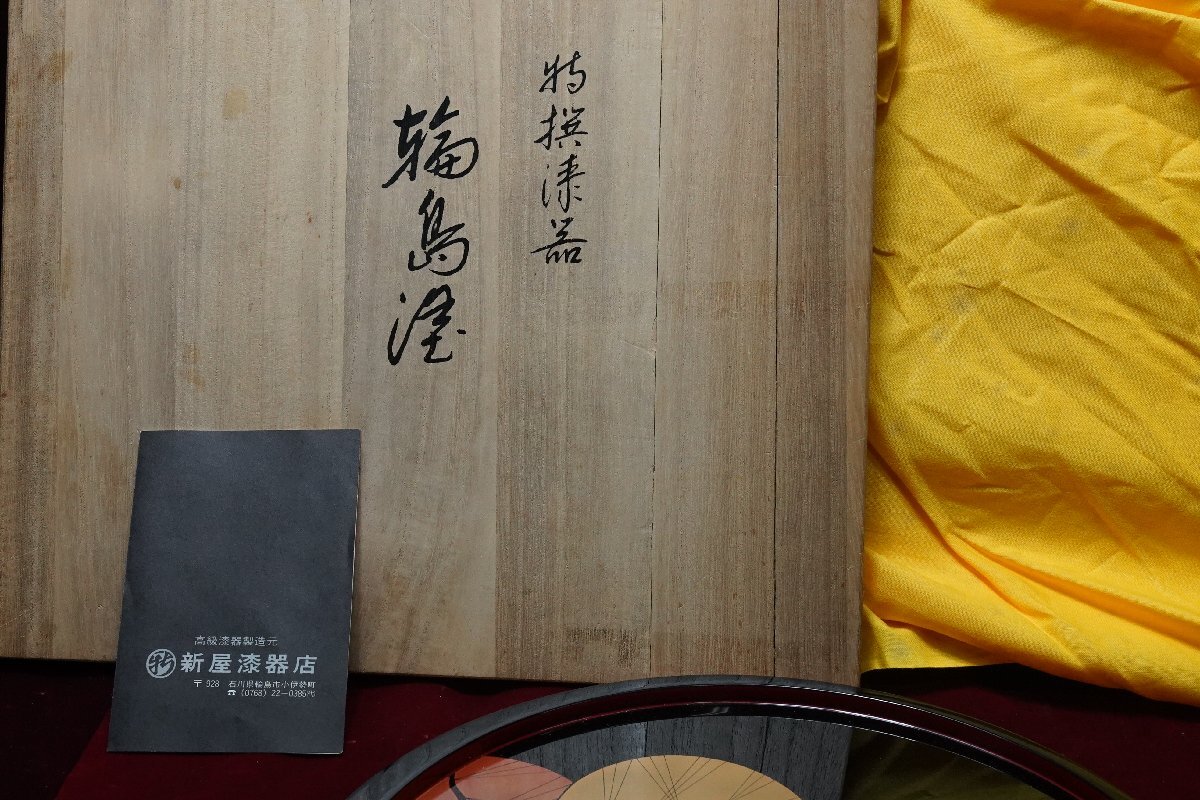 特撰漆器
輪島塗
高級漆器製造元
新 新屋漆器店
〒928 石川県輪島市小伊勢町
☎(0768)22-0395代